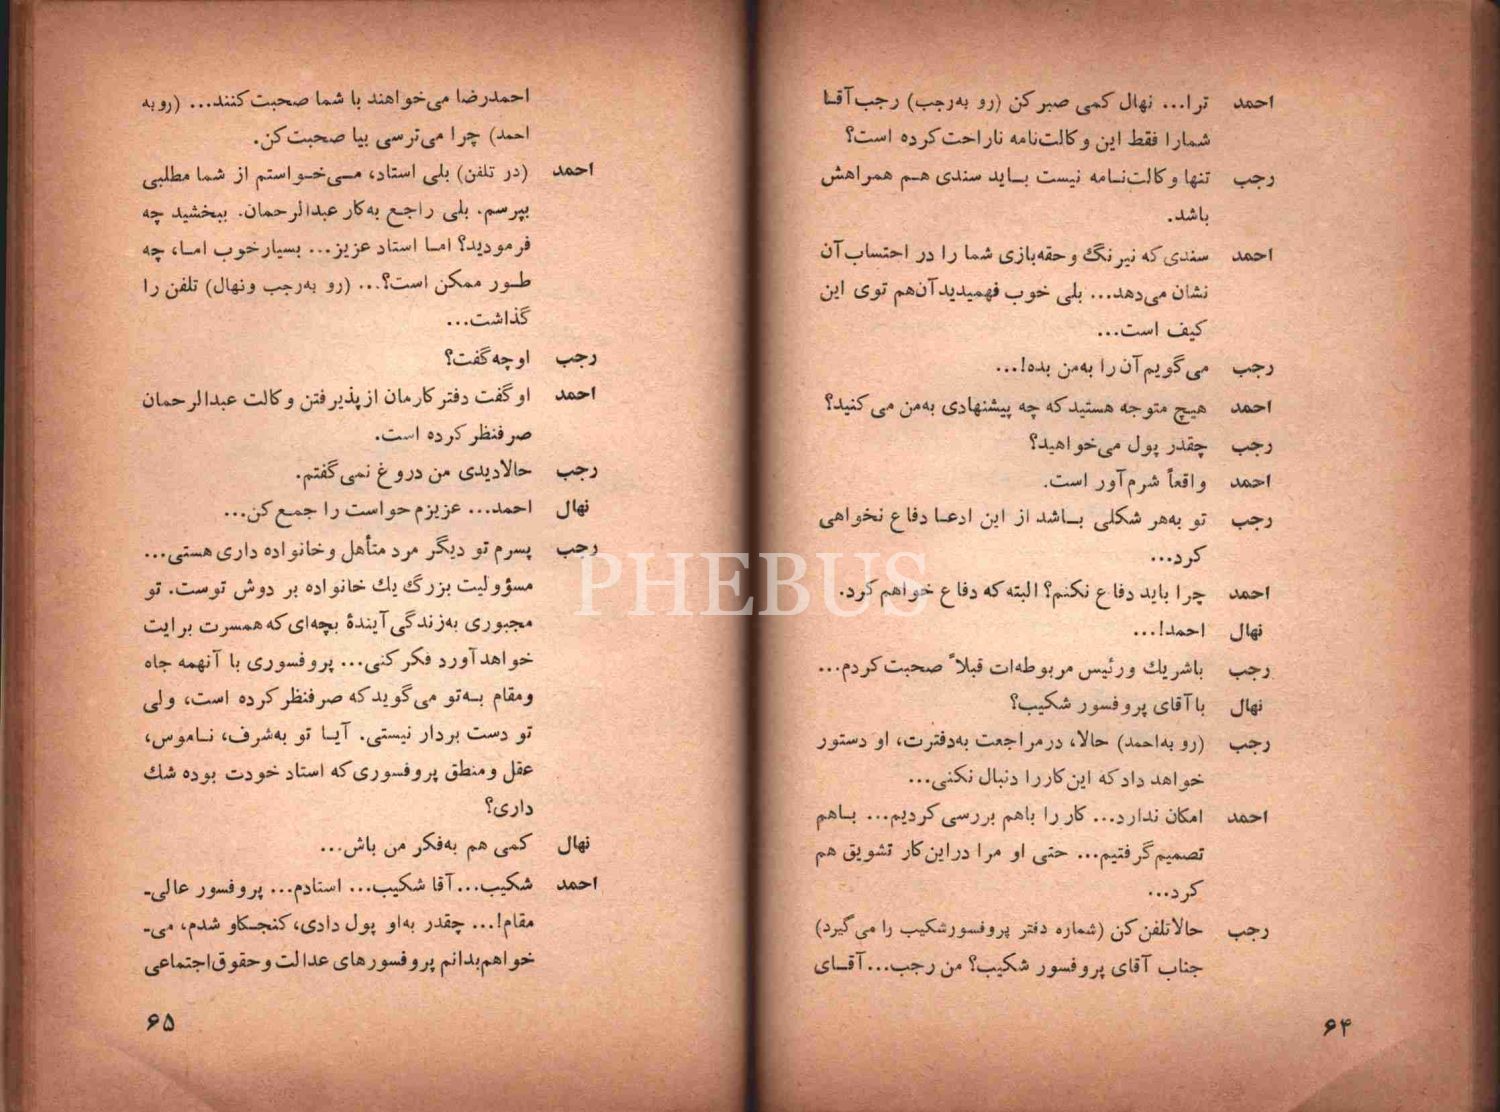 احمد ترا... نهال کمی صبر کن (رو به‌رجب) رجب‌آقا
شمارا فقط این وکالت‌نامه ناراحت کرده است؟
رجب تنها وکالت‌نامه نیست باید سندی هم همراهش
باشد.
احمد سندی که نیرنگ وحقه‌بازی شما را در احتساب آن
نشان می‌دهد... بلی خوب فهمیدید آن‌هم توی این
کیف است...
رجب می‌گویم آن را به‌من بده!...
احمد هیچ متوجه هستید که چه پیشنهادی به‌من می‌کنید؟
رجب چقدر پول می‌خواهید؟
احمد واقعاً شرم‌آور است.
رجب تو به‌هر شکلی باشد از این ادعا دفاع نخواهی
کرد...
احمد چرا باید دفاع نکنم؟ البته که دفاع خواهم کرد.
نهال احمد!...
رجب باشریك ورئیس مربوطه‌ات قبلاً صحبت کردم...
نهال با آقای پروفسور شکیب؟
رجب (رو به‌احمد) حالا، درمراجعت به‌دفترت، او دستور
خواهد داد که این کار را دنبال نکنی...
احمد امکان ندارد... کار را باهم بررسی کردیم... باهم
تصمیم گرفتیم... حتی او مرا دراین کار تشویق هم
کرد...
رجب حالاتلفن کن (شماره دفتر پروفسورشکیب را می‌گیرد)
جناب آقای پروفسور شکیب؟ من رجب... آقای
۶۴
احمدرضا می‌خواهند با شما صحبت کنند... (رو به
احمد) چرا می‌ترسی بیا صحبت کن.
احمد (در تلفن) بلی استاد، می‌خواستم از شما مطلبی
بپرسم. بلی راجع به‌کار عبدالرحمان. ببخشید چه
فرمودید؟ اما استاد عزیز... بسیارخوب اما، چه
طور ممکن است؟... (رو به‌رجب ونهال) تلفن را
گذاشت...
رجب اوچه گفت؟
احمد او گفت دفتر کارمان از پذیرفتن وکالت عبدالرحمان
صرفنظر کرده است.
رجب حالادیدی من دروغ نمی‌گفتم.
نهال احمد... عزیزم حواست را جمع کن...
رجب پسرم تو دیگر مرد متأهل وخانواده داری هستی...
مسؤولیت بزرگ یك خانواده بر دوش توست. تو
مجبوری به‌زندگی آیندهٔ بچه‌ای که همسرت برایت
خواهد آورد فکر کنی... پروفسوری با آنهمه جاه
ومقام به‌تو می‌گوید که صرفنظر کرده است، ولی
تو دست بردار نیستی. آیا تو به‌شرف، ناموس،
عقل ومنطق پروفسوری که استاد خودت بوده شك
داری؟
نهال کمی هم به‌فکر من باش...
احمد شکیب... آقا شکیب... استادم... پروفسور عالی‌ـ
مقام!... چقدر به‌او پول دادی، کنجکاو شدم، می‌ـ
خواهم بدانم پروفسورهای عدالت وحقوق اجتماعی
۶۵
PHEBUS